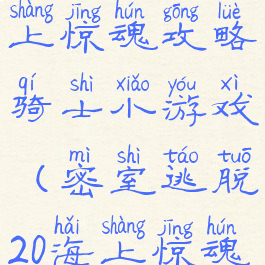 shàng jīng hún gōng lüè
上惊魂攻略
qí shì xiǎo yóu xì
骑士小游戏
mì shì táo tuō
（密室逃脱
hǎi shàng jīng hún
20海上惊魂